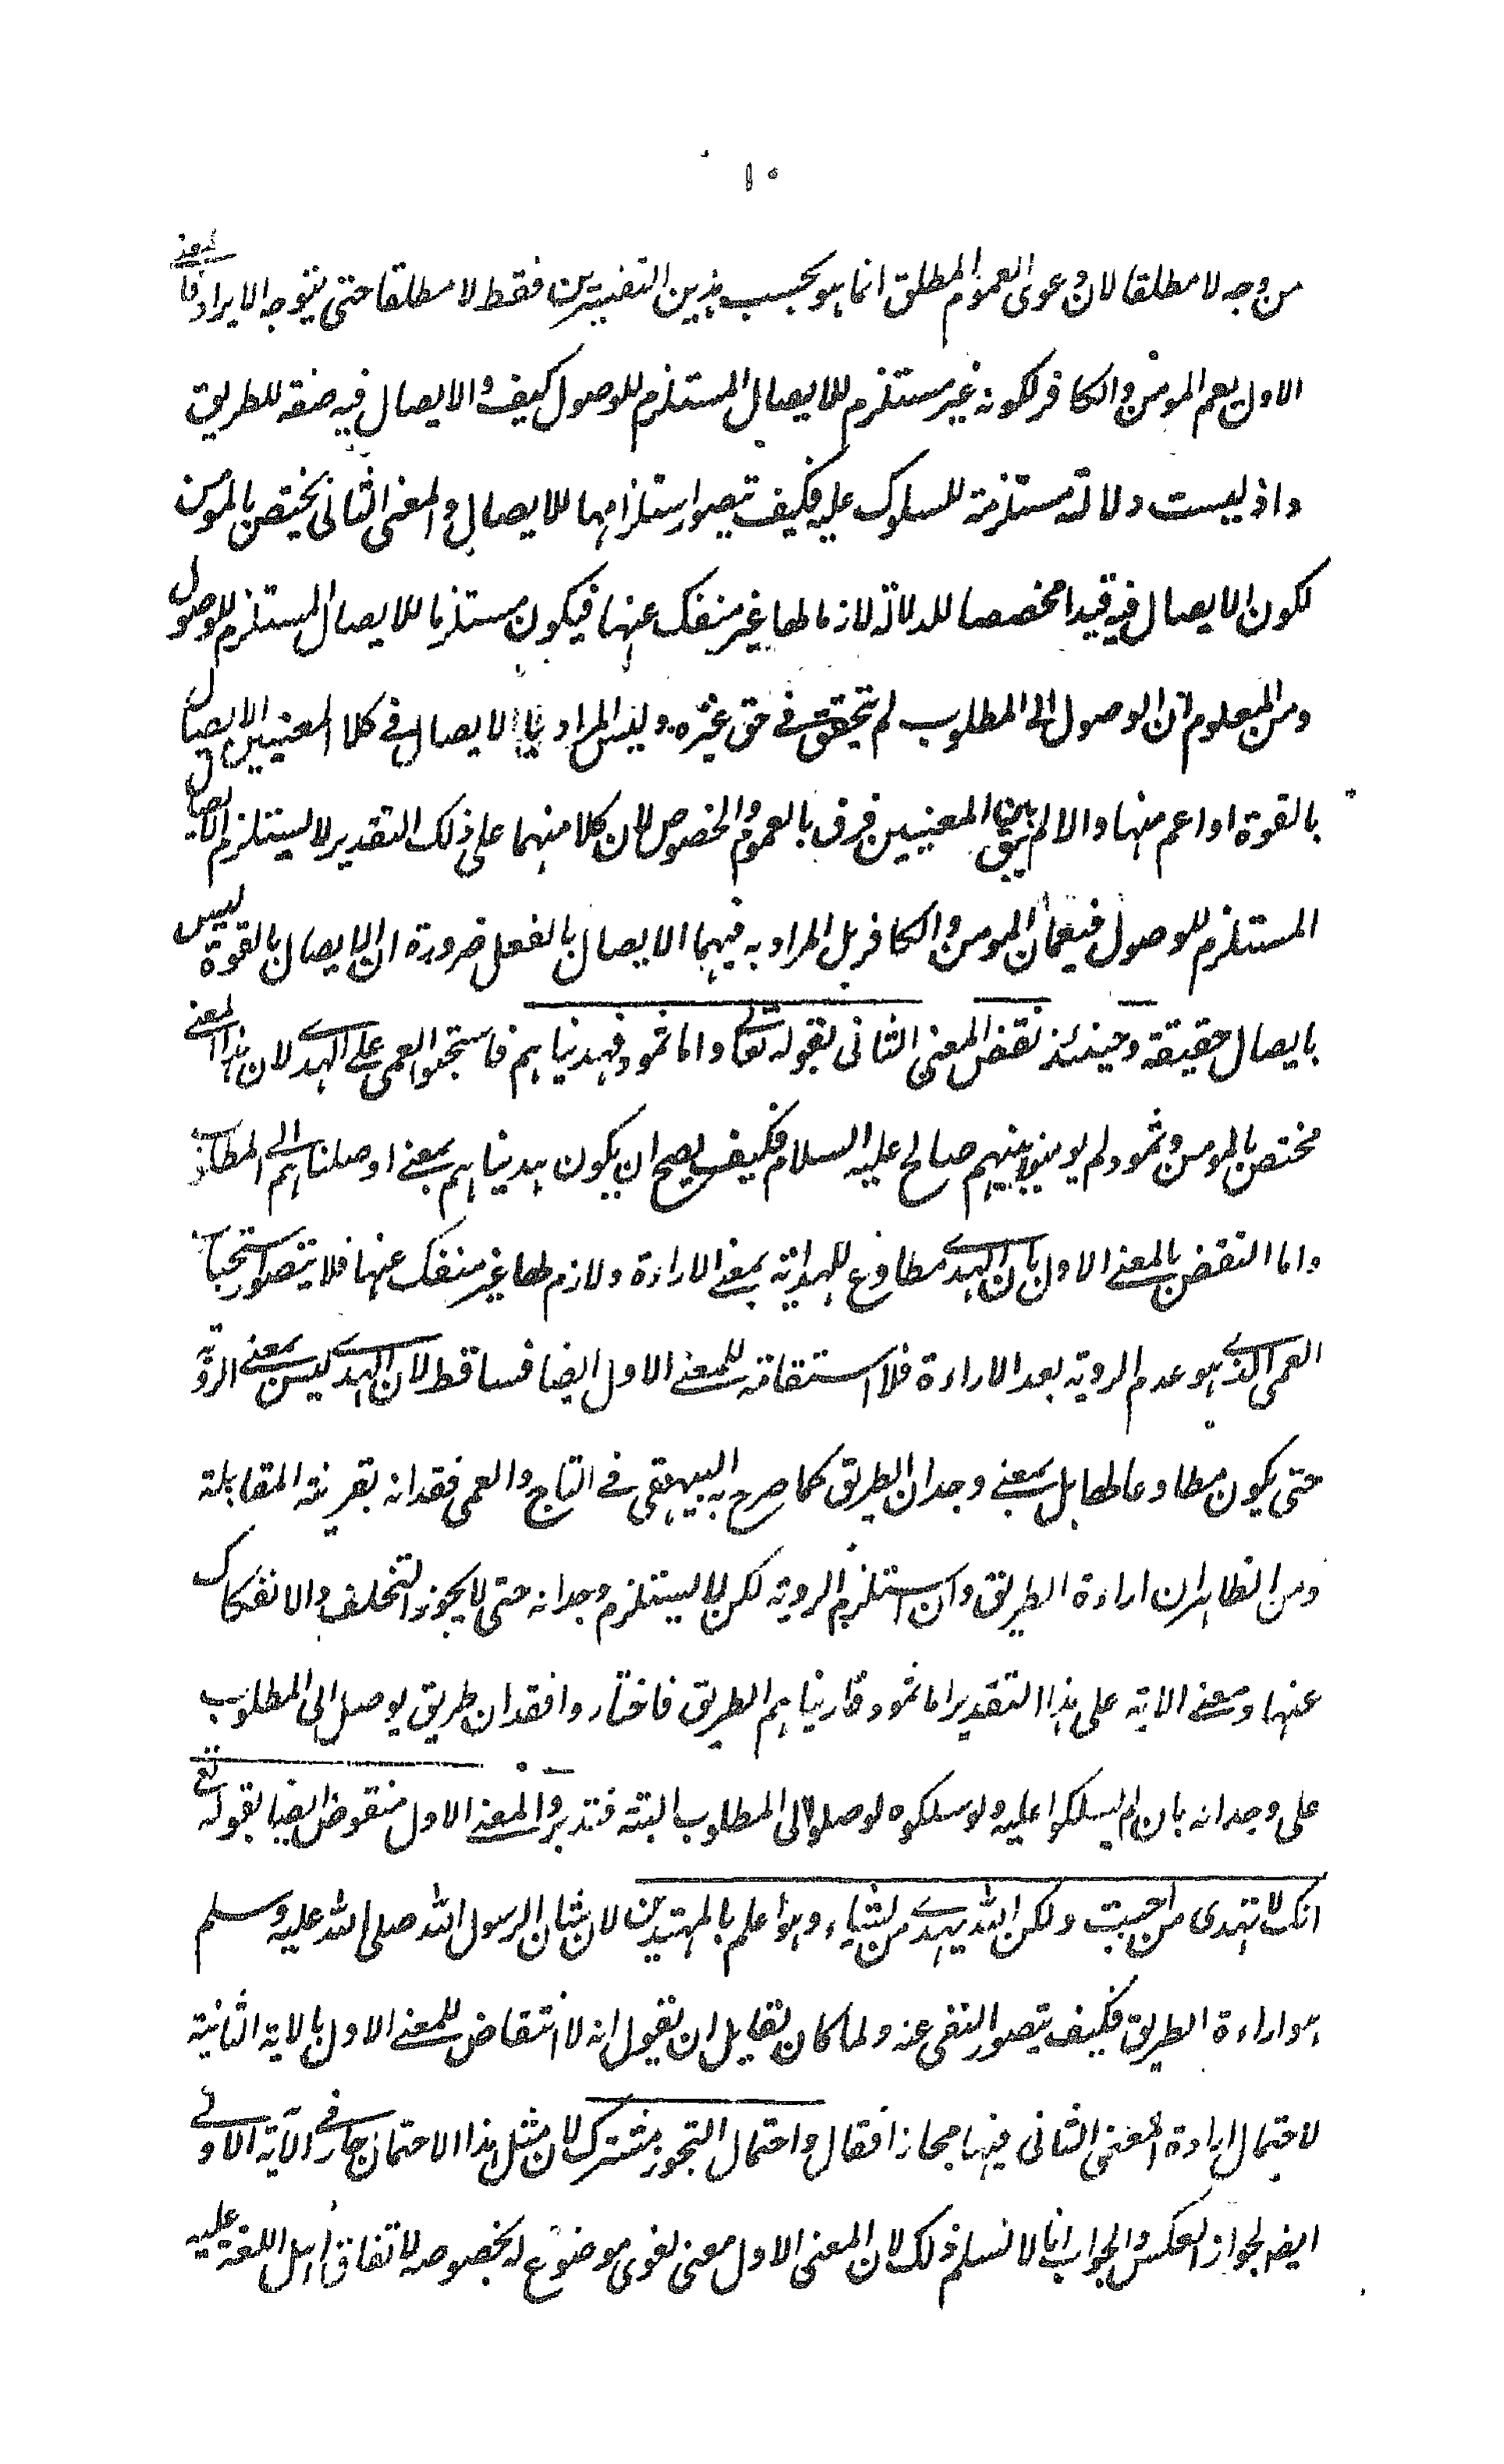 ١٠
من وجه لا مطلقا لان دعوى العموم المطلق انما هو بحسب هذين التفسيرين فقط لا مطلقا حتى يتوجه الايراد فالمعنے
الاول يعم المومن والكافر لكونه غير مستلزم للايصال المستلزم للوصول كيف والايصال فيه صفة للطريق
واذ ليست دلالته مستلزمة للسلوك عليه فكيف يتصور استلزامها للايصال والمعنى الثانى يختص بالمومن
لكون الايصال فيه قيدا مخصصا للدلالة لازما لها غير منفك عنها فيكون مستلزما للايصال المستلزم للوصول
ومن المعلوم ان الوصول الى المطلوب لم يتحقق فے حق غيره وليس المراد بالايصال فے كلا المعنيين الايصال
بالقوة او اعم منها والا لم يبق بين المعنيين فرق بالعموم والخصوص لان كلا منهما على ذلك التقدير لا يستلزم الايصال
المستلزم للوصول فيعمان المومن والكافر بل المراد به فيهما الايصال بالفعل ضرورة ان الايصال بالقوة ليس
بايصال حقيقة وحينئذ نقض المعنى الثانى بقوله تعالے واما ثمود فهديناهم فاستحبوا العمى علے الهدے لان هذا المعنے
مختص بالمومن وثمود لم يومنوا بنبيهم صالح عليه السلام فكيف يصح ان يكون هديناهم بمعنے اوصلناهم الے المطلوب
واما النقض بالمعنے الاول بان الهدے مطاوع للهداية بمعنے الاراءة ولازم لها غير منفك عنها فلا يتصور استحباب
العمى الذے هو عدم الروية بعد الاراءة فلا استقامة للمعنے الاول ايضا فساقط لان الهدے ليس بمعنے الروية
حتى يكون مطاوعا لها بل بمعنے وجدان الطريق كما صرح به البيهقى فے التاج والعمى فقدانه بقرينة المقابلة
ومن الظاهر ان اراءة الطريق وان استلزم الروية لكن لا يستلزم وجدانه حتى لا يجوز التخلف والانفكاك
عنها ومعنے الاية على هذا التقدير اما ثمود فاريناهم الطريق فاختاروا فقدان طريق يوصل الى المطلوب
على وجدانه بان لم يسلكوا عليه ولو سلكوه لوصلوا الى المطلوب البتة فتدبر والمعنے الاول منقوض ايضا بقوله تعے
انك لا تهدى من احببت ولكن الله يهدے من يشاء وهو اعلم بالمهتدين لان شان الرسول الله صلى الله عليه وسلم
هو اراءة الطريق فكيف يتصور النفى عنه ولما كان لقايل ان يقول انه لا انتقاض للمعنے الاول بالاية الثانية
لاحتمال ارادة المعنى الثانى فيها مجازا فقال واحتمال التجوز مشترك لان مثل هذا الاحتمال جار فے الآية الاولے
ايضا لجواز العكس والجواب انا لا نسلم ذلك لان المعنى الاول معنى لغوى موضوع له بخصوصه لاتفاق اهل اللغة عليه